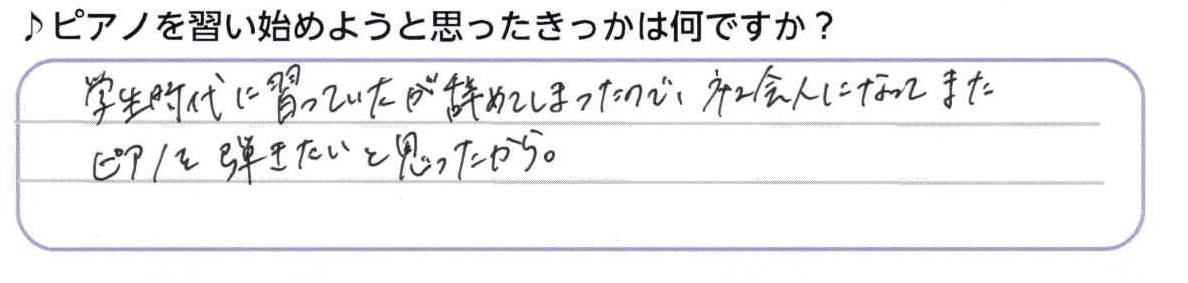 ♪ピアノを習い始めようと思ったきっかは何ですか？
学生時代に習っていたが辞めてしまったので、社会人になってまた
ピアノを弾きたいと思ったから。